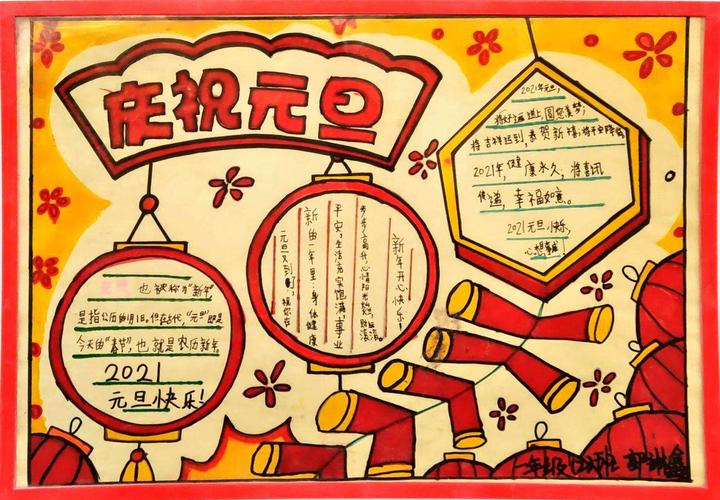 庆祝元旦
2021年元旦，
将好运送上，圆您美梦；
将吉祥送到，恭贺新禧；将平安降临
2021年，健康永久，将喜讯
传递，幸福如意。
2021元旦快乐，
心想事成！
元旦又到，祝你在
新的一年里：身体健康
平安，生活充实饱满，事业
步步高升，心情阳光艳，财滚滚。
新年开心快乐！
也被称为"新年"
是指公历的1月1日。但在古代，"元旦"即是
今天的"春节"，也就是农历新年。
2021
元旦快乐！
一年级班